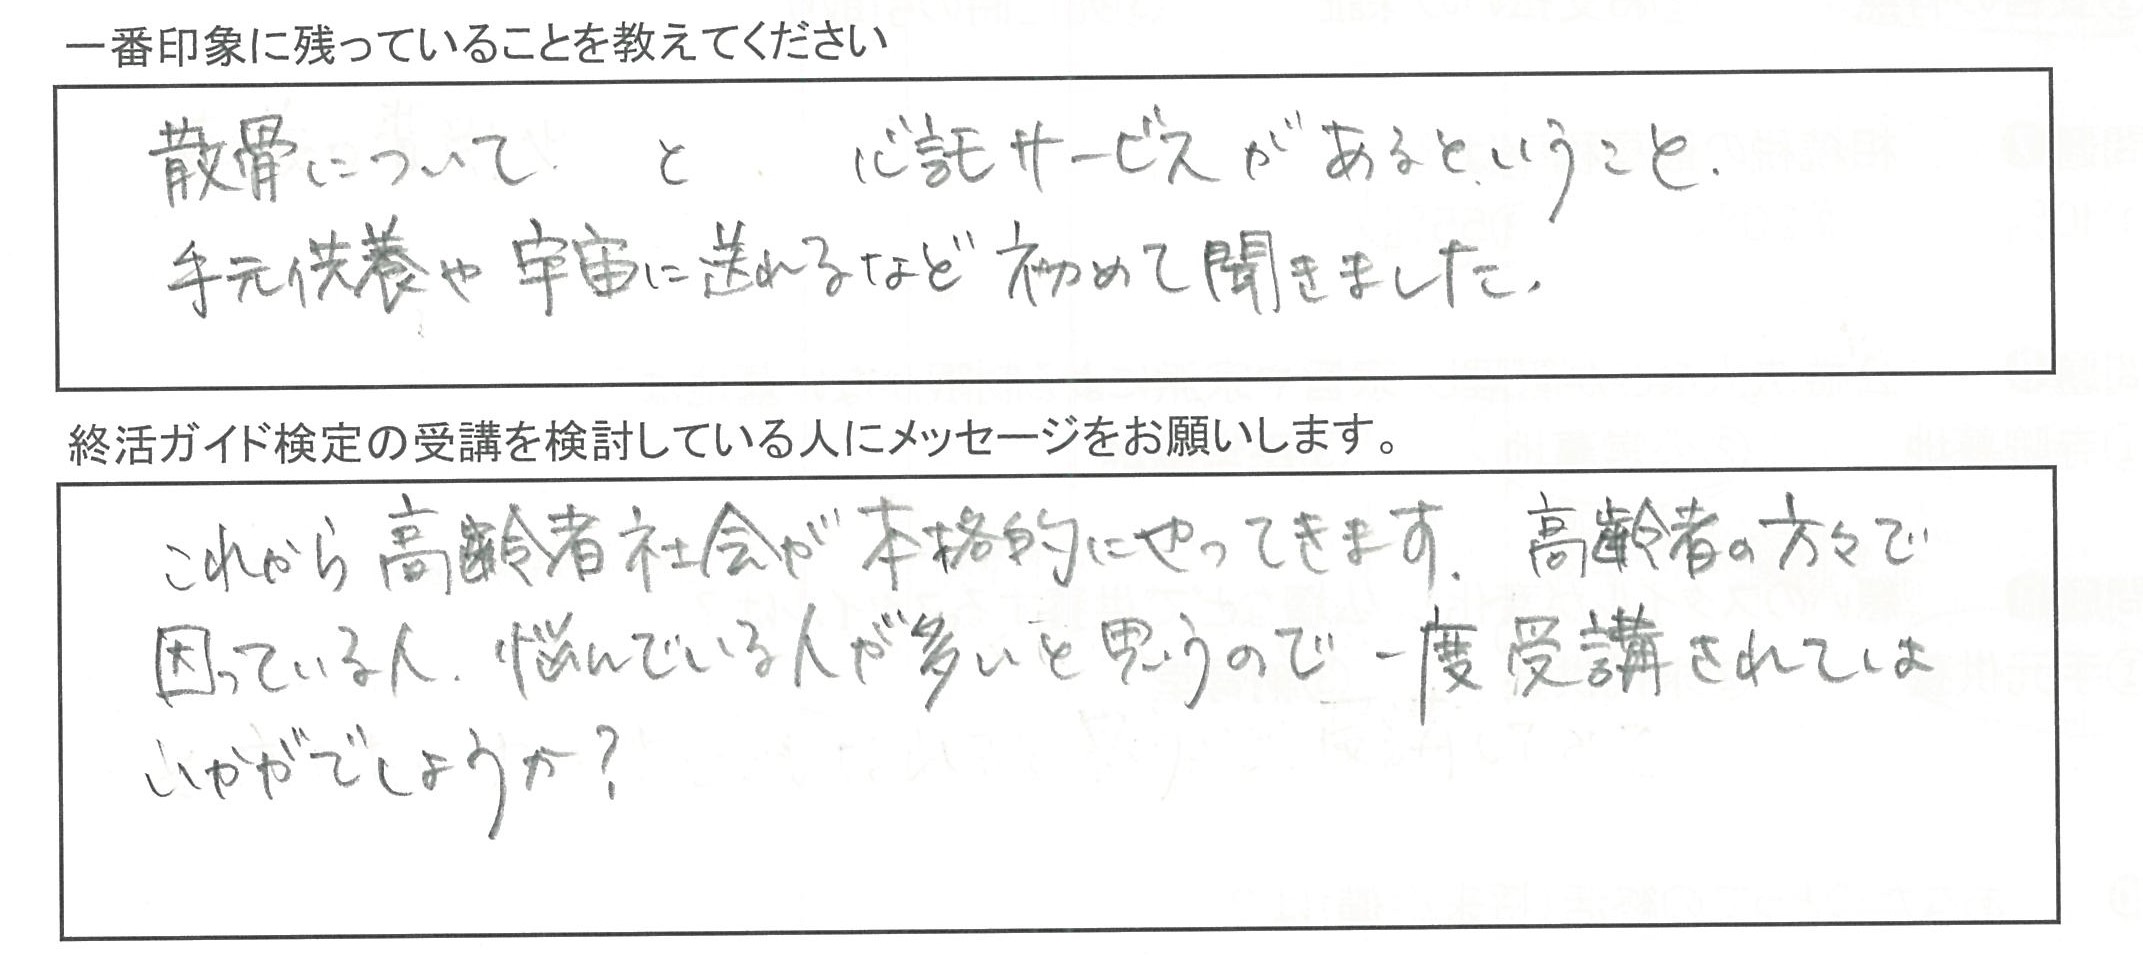 一番印象に残っていることを教えてください
散骨について と 心託サービスがあるということ.
手元供養や宇宙に送れるなど初めて聞きました.
終活ガイド検定の受講を検討している人にメッセージをお願いします。
これから高齢者社会が本格的にやってきます. 高齢者の方々で
困っている人. 悩んでいる人が多いと思うので一度受講されてしは
いかがでしょうか?